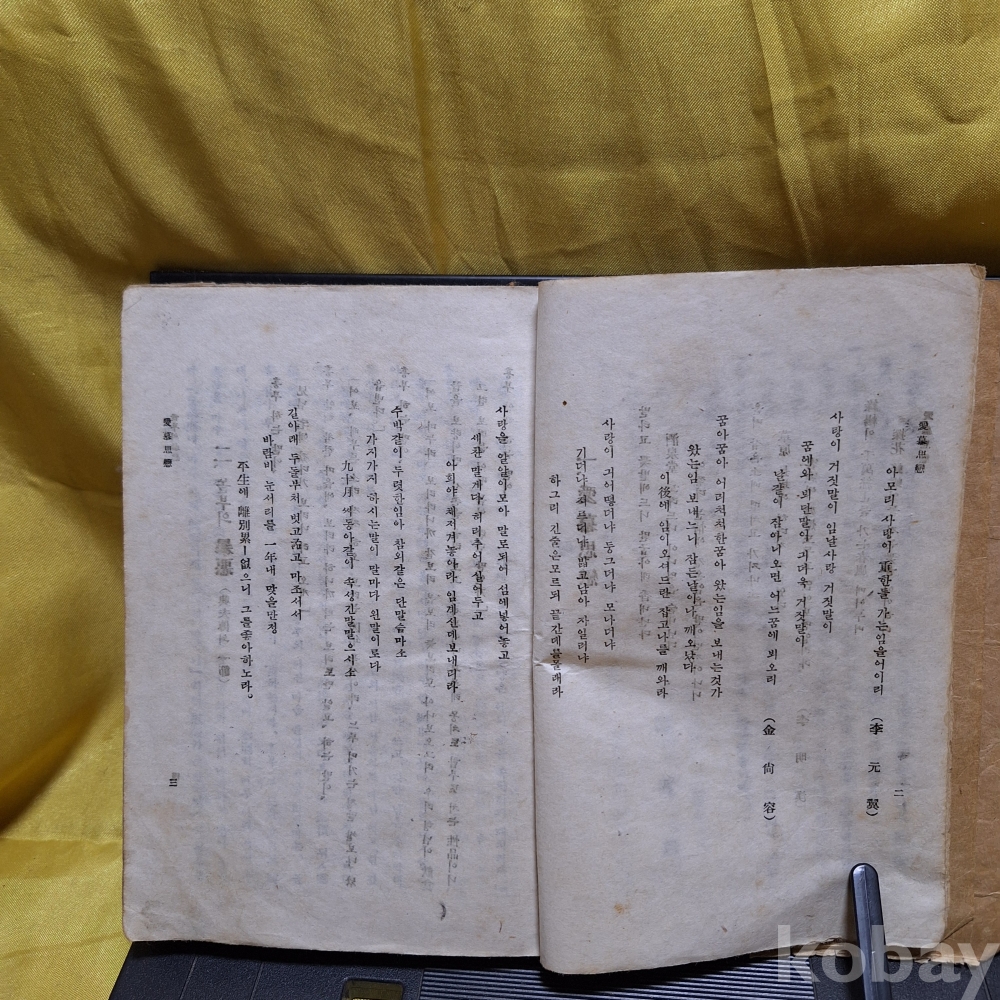 愛慕思戀
二
아모리 사랑이 重한들 가는임을어이리
(李元翼)
사랑이 거짓말이 임날사랑 거짓말이
꿈에와 뵈단말이 긔다욱 거짓말이
날같이 잠아니오면 어느꿈에 뵈오리
(金尙容)
꿈아꿈아 어리척척한꿈아 왔는임을 보내는것가
왔는임 보내느니 잠든날이나 깨오낫다
이後에 임이오셔드란 잡고나를 깨와라
사랑이 긔어떻더냐 둥그더냐 모나더냐
기더냐 자르더냐 밟고남아 자일러냐
하그리 긴줄은모르되 끝간데를몰래라
사랑을 알알이모아 말로되어 섬에넣어놓고
세찬 말게다 허리추어실어두고
아희야 채저겨놓아라 임계신데보내리라
수박같이 두렷한임아 참외같은 단말슴마소
가지가지 하시는말이 말마다 왼말이로다
九十月 씨동아같이 속성긴말말으시소
길아래 두돌부처 벗고굶고 마조서서
바람비 눈서리를 一年내 맞을만정
平生에 離別累ㅣ없으니 그를좋아하노라。
愛慕思戀
三
kobay